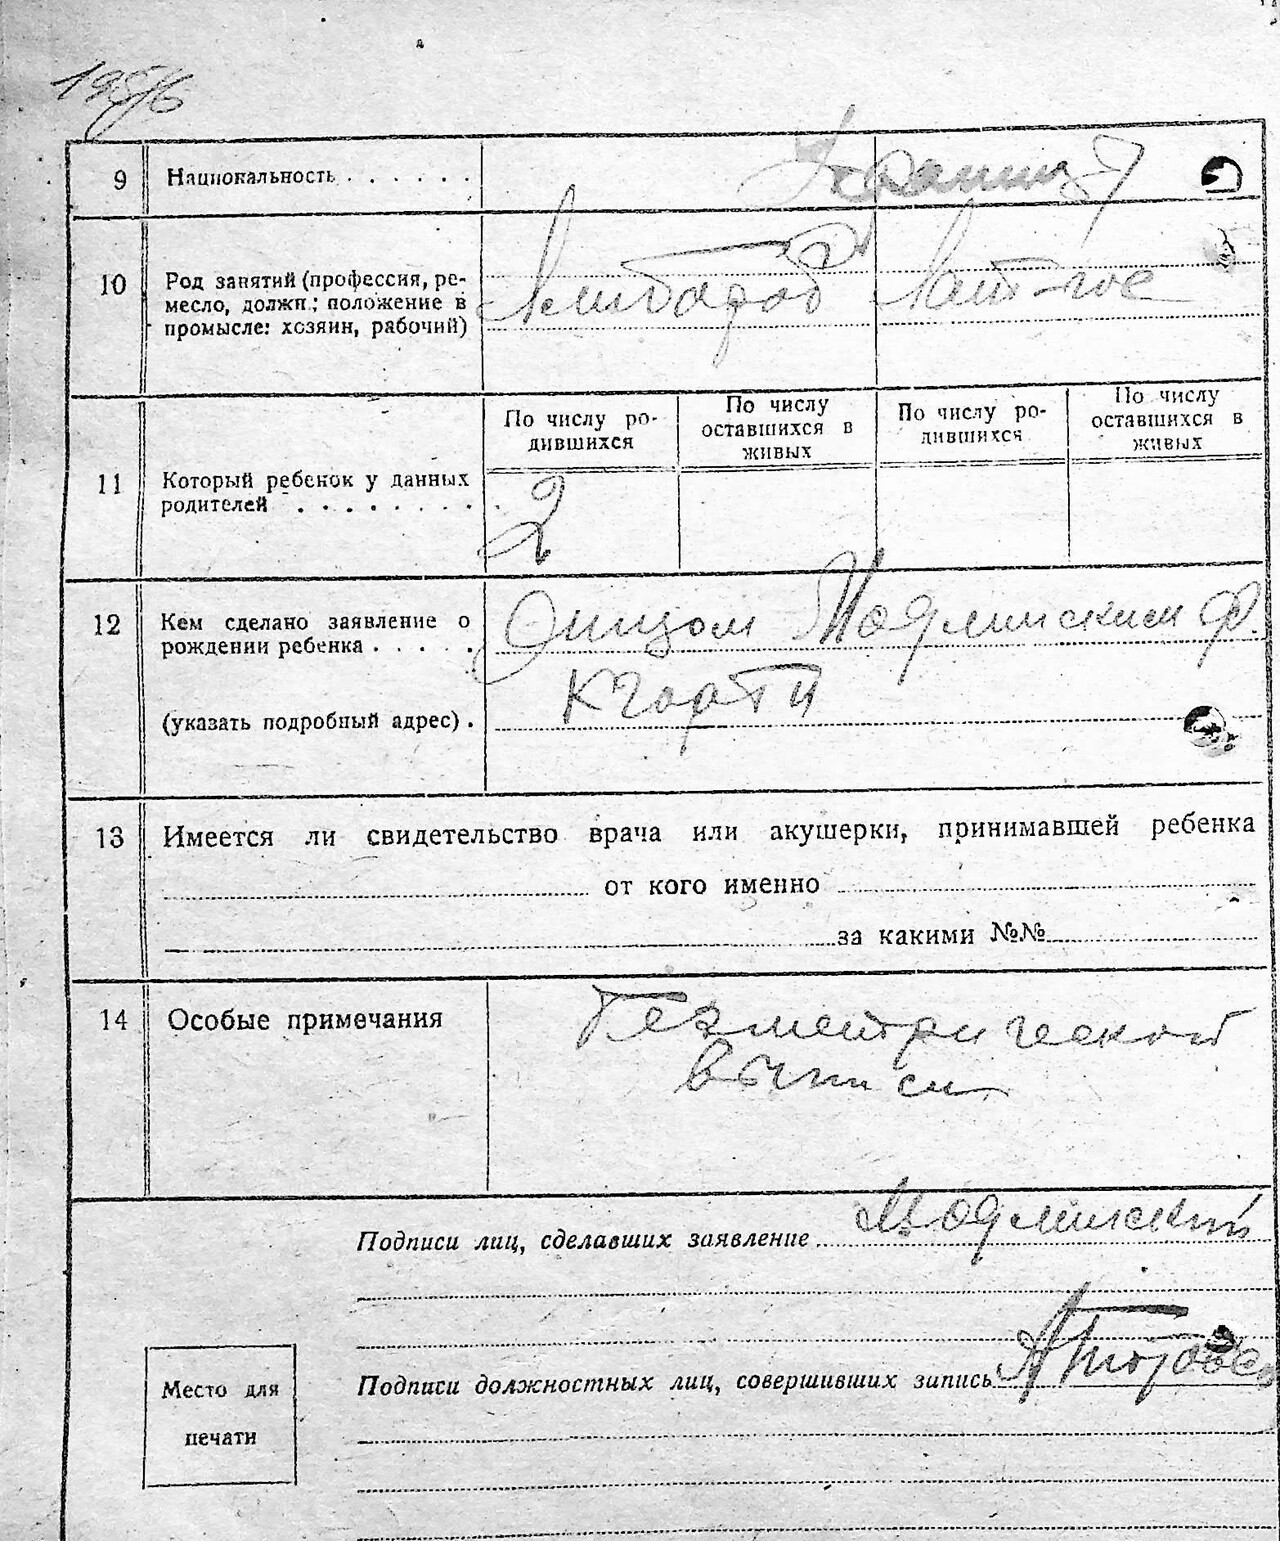 9 Национальность . . . . . .
10 Род занятий (профессия, ре-
месло, должн.; положение в
промысле: хозяин, рабочий)
11 Который ребенок у данных
родителей . . . . . . . .
По числу ро-
дившихся
По числу
оставшихся в
живых
По числу ро-
дившихся
По числу
оставшихся в
живых
2
12 Кем сделано заявление о
рождении ребенка . . . . .
(указать подробный адрес) .
Модлинским Ф.
13 Имеется ли свидетельство врача или акушерки, принимавшей ребенка
от кого именно
за какими №№
14 Особые примечания
метрической
выписи
Подписи лиц, сделавших заявление Модлинский
Подписи должностных лиц, совершивших запись
Место для
печати